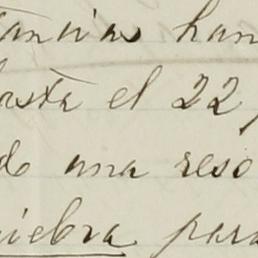 tancias han
hasta el 22,
do una reso
uiebra para